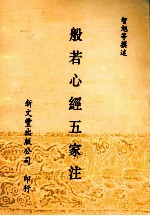 智旭等撰述
般若心經五家注
新文豐出版公司 印行